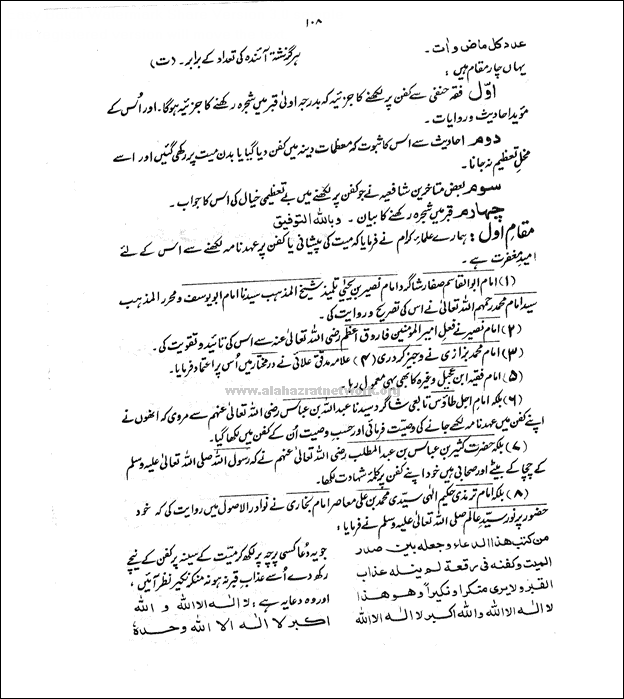 ۱۰۸
عدد کل ماض و اٰت۔
ہر گزشتہ آئندہ کی تعداد کے برابر۔ (ت)
یہاں چار مقام ہیں :
اوّل فقہ حنفی سے کفن پر لکھنے کا جزئیہ کہ بدرجہ اولیٰ قبر میں شجرہ رکھنے کا جزئیہ ہوگا۔ اور اُس کے
مؤید احادیث و روایات۔
دوم احادیث سے اس کا ثبوت کہ معظمات دینیہ میں کفن دیا گیا یا بدن میت پر رکھی گئیں اور اسے
مخل تعظیم نہ جانا۔
سوم بعض متاخرین شافعیہ نے جو کفن پر لکھنے میں بے تعظیمی خیال کی اس کا جواب۔
چہارم قبر میں شجرہ رکھنے کا بیان۔ وباللہ التوفیق
مقامِ اول : ہمارے علمائے کرام نے فرمایا کہ میت کی پیشانی یا کفن پر عہد نامہ لکھنے سے اس کے لئے
امیدِ مغفرت ہے۔
(۱) امام ابوالقاسم صفار شاگرد امام نصیر بن یحیٰی تلمیذ شیخ المذہب سیدنا امام ابویوسف و محرر المذہب
سید امام محمد رحمہم اللہ تعالیٰ نے اس کی تصریح و روایت کی۔
(۲) امام نصیر نے فعلِ امیر المؤمنین فاروق اعظم رضی اللہ تعالیٰ عنہ سے اس کی تائید و تقویت کی۔
(۳) امام محمد بزازی نے وجیز کردری (۴) علامہ مدقق علائی نے درمختار میں اُس پر اعتماد فرمایا۔
(۵) امام فقیہ ابن عجیل وغیرہ کا بھی یہی معمول رہا۔
www.alahazratnetwork.org
(۶) بلکہ امام اجل طاؤس تابعی شاگرد سیدنا عبداللہ بن عباس رضی اللہ تعالیٰ عنہم سے مروی کہ انھوں نے
اپنے کفن میں عہد نامہ لکھے جانے کی وصیت فرمائی اور حسب وصیت اُن کے کفن میں لکھا گیا۔
(۷) بلکہ حضرت کثیر بن عباس بن عبدالمطلب رضی اللہ تعالیٰ عنہم نے کہ رسول اللہ صلی اللہ تعالیٰ علیہ وسلم
کے چچا کے بیٹے اور صحابی ہیں خود اپنے کفن پر کلمۂ شہادت لکھا۔
(۸) بلکہ امام ترمذی حکیم الٰہی سیدی محمد بن علی معاصر امام بخاری نے نوادر الاصول میں روایت کی کہ خود
حضور پُرنور سیدِ عالم صلی اللہ تعالیٰ علیہ وسلم نے فرمایا :
من کتب ھذا الدعاء وجعلہ بین صدر
المیت وکفنہ فی رقعۃ لم ینلہ عذاب
القبر ولا یری منکرا ونکیراً وھو ھذا
لا الٰہ الا اللہ واللہ اکبر لا الٰہ الا اللہ
جو یہ دُعا کسی پرچہ پر لکھ کر میت کے سینہ پر کفن کے نیچے
رکھ دے اُسے عذابِ قبر نہ ہو نہ منکر نکیر نظر آئیں،
اور وہ دعا یہ ہے : لا الٰہ الا اللہ و اللہ
اکبر لا الٰہ الا اللہ وحدہٗ